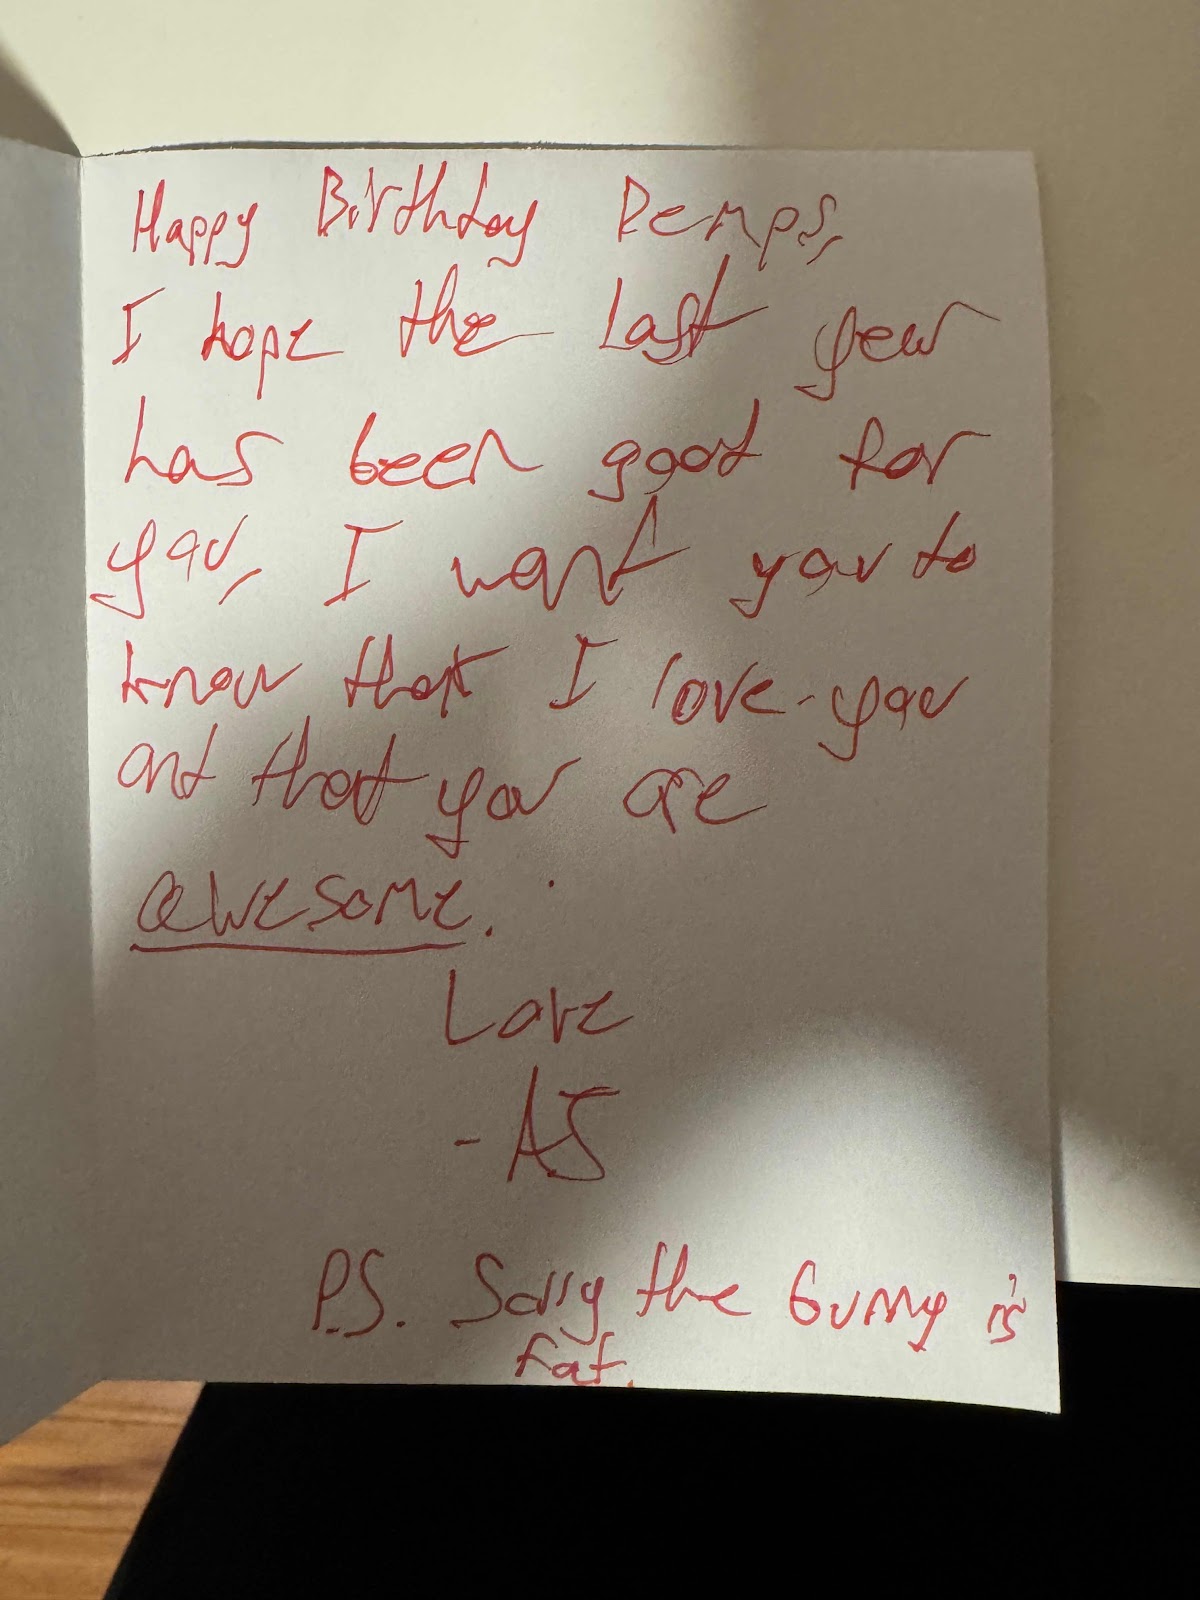 Happy Birthday Demps,
I hope the last year
has been good for
you, I want you to
know that I love you
and that you are
awesome.
Love
- AJ
P.S. Sorry the bunny is
fat.